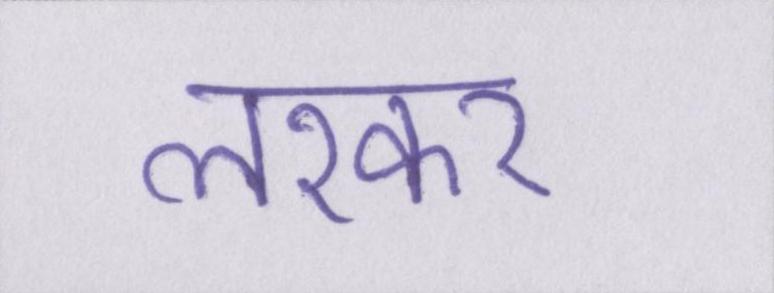 लश्कर